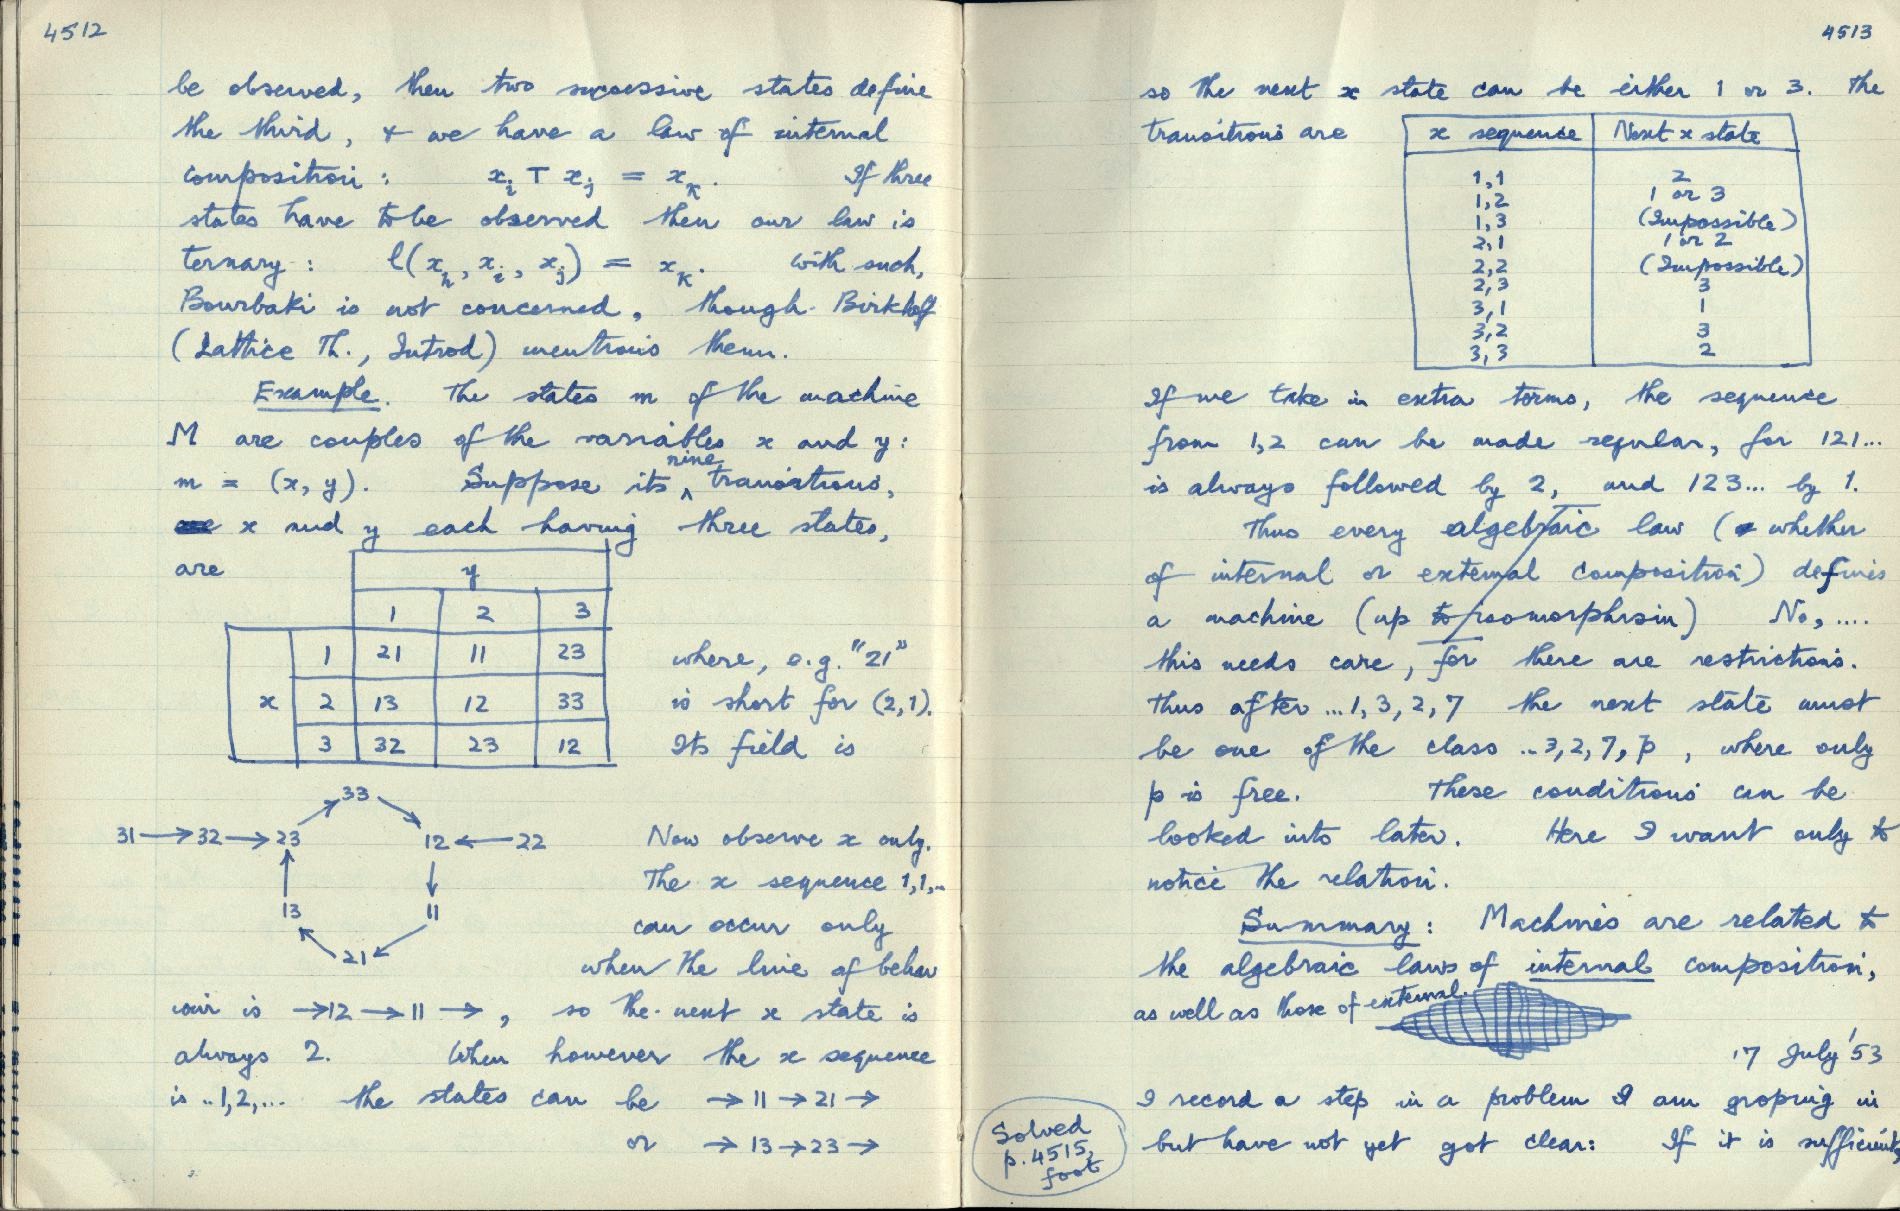 4512
be observed, then two successive states define
the third, & we have a law of internal
composition: xᵢ T xⱼ = xₖ. If three
states have to be observed then our law is
ternary: l(xₕ, xᵢ, xⱼ) = xₖ. With such,
Bourbaki is not concerned, though Birkhoff
(Lattice Th., Introd) mentions them.
Example. The states m of the machine
M are couples of the variables x and y:
m = (x, y). Suppose its nine transitions,
x and y each having three states,
are
y
1 2 3
1 21 11 23
x 2 13 12 33
3 32 23 12
where, e.g. "21"
is short for (2,1).
Its field is
33
31 → 32 → 23 12 ← 22
13 11
21
Now observe x only.
The x sequence 1,1,..
can occur only
when the line of behav
iour is →12 → 11 →, so the next x state is
always 2. When however the x sequence
is ..1,2,... the states can be → 11 → 21 →
or → 13 → 23 →
4513
so the next x state can be either 1 or 3. The
transitions are
x sequence Next x state
1,1 2
1,2 1 or 3
1,3 (Impossible)
2,1 1 or 2
2,2 (Impossible)
2,3 3
3,1 1
3,2 3
3,3 2
If we take in extra terms, the sequence
from 1,2 can be made regular, for 121...
is always followed by 2, and 123... by 1.
Thus every algebraic law (whether
of internal or external composition) defines
a machine (up to isomorphism) No, ....
this needs care, for there are restrictions.
Thus after ...1, 3, 2, 7 the next state must
be one of the class ..3, 2, 7, p , where only
p is free. These conditions can be
looked into later. Here I want only to
notice the relation.
Summary: Machines are related to
the algebraic laws of internal composition,
as well as those of external.
17 July '53
I record a step in a problem I am groping in
but have not yet got clear: If it is sufficient,
Solved
p. 4515,
foot